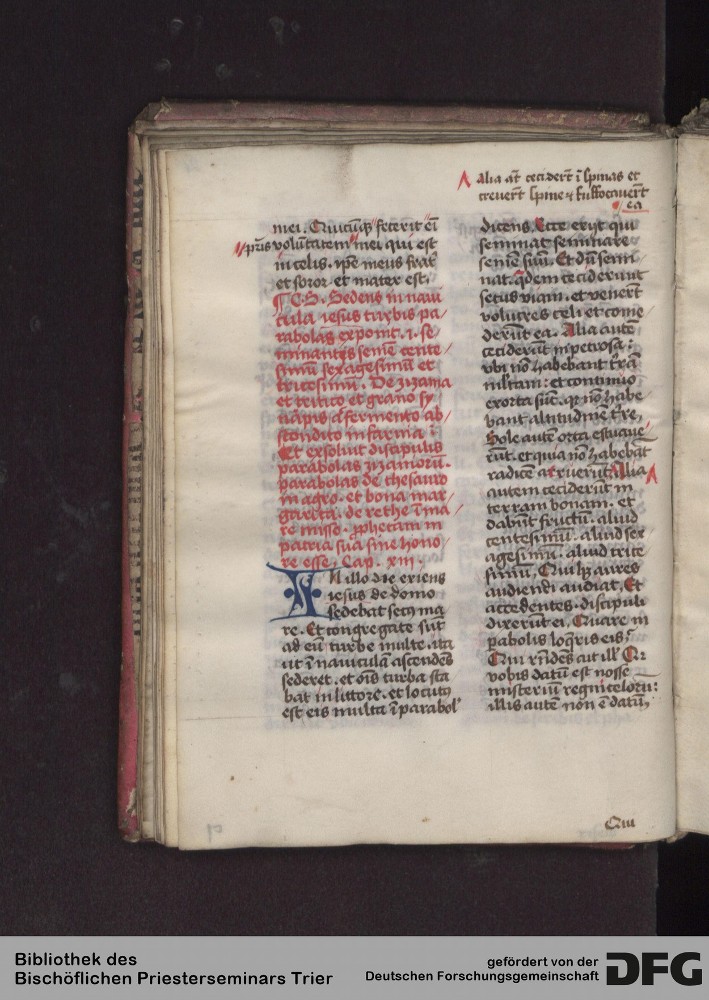 alia at̄ cecidert̄ ī spinas et
creuert̄ spine ⁊ suffocauert̄
ea
mei. Quicūqꝫ fecerit eī
pr̄is volūtatem mei qui est
in celis. ip̄e meus frat̄
et soror et mater est.
¶ C. S. Sedens in naui
cula iesus turbis pa
rabolas exponit. i. se
minantis semē cente
simū sexagesimū et
tricesimū. De zizania
et tritico et grano sy
napis a fermento ab
scondito in farina :
Et exsoluit discipulis
parabolas zizaniorū.
parabolas de thesauro
in agro. et bona mar
garita. de rethe ī ma
re misso. ꝓphetam in
patria sua sine hono
re esse. Cap. xiii.
IN illo die exiens
iesus de domo
sedebat secꝰ ma
re. Et congregate sūt
ad eū turbe multe. ita
ut ī nauiculā ascendēs
sederet. et oīs turba sta
bat in littore. et locutꝰ
est eis multa ī parabol'
dicens. Ecce exyt qui
seminat seminare
semē suū. Et dū semi
nat. q̄dem ceciderunt
secus viam. et venert̄
volucres celi et come
derūt ea. Alia autē
ceciderūt in petrosa :
vbi nō habebant t̄rā
multam : et continuo
exorta sūt. qꝛ nō habe
bant altitudinē t̄re.
Sole autē orto estuaue
rūt. et quia nō habebāt
radicē aruerūt. Alia
autem ceciderūt in
terram bonam. et
dabūt fructū. aliud
centesimū. aliud sex
agesimū. aliud trice
simū. Qui hꝫ aures
audiendi audiat. Et
accedentes. discipuli
dixerūt ei. Quare in
pabolis loq̄ris eis?
Qui rn̄dēs ait ill' Qꝛ
vobis datū est nosse
misteriū regni celorū :
illis autē non ē datū.
Qui
Bibliothek des
Bischöflichen Priesterseminars Trier
gefördert von der
Deutschen Forschungsgemeinschaft
DFG